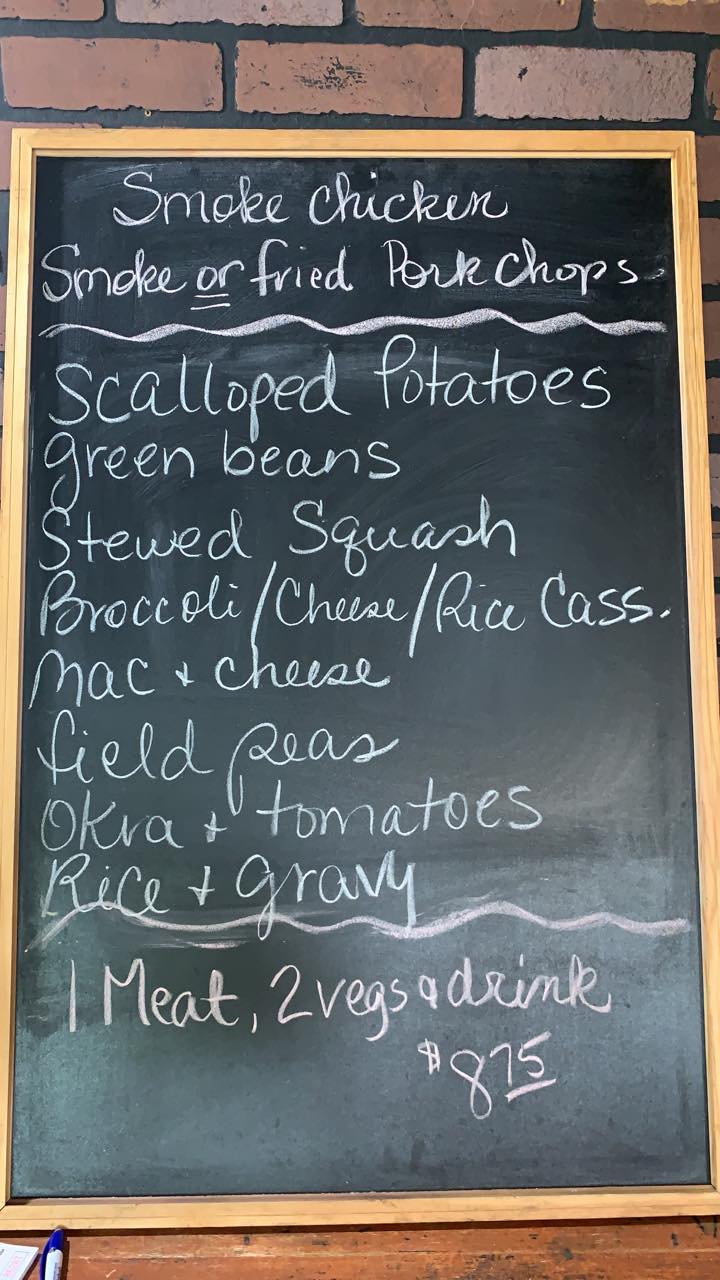 Smoke chicken
Smoke or fried Pork chops
Scalloped Potatoes
green beans
Stewed Squash
Broccoli/Cheese/Rice Cass.
Mac + cheese
field peas
Okra + tomatoes
Rice + gravy
1 Meat, 2 vegs & drink
$875